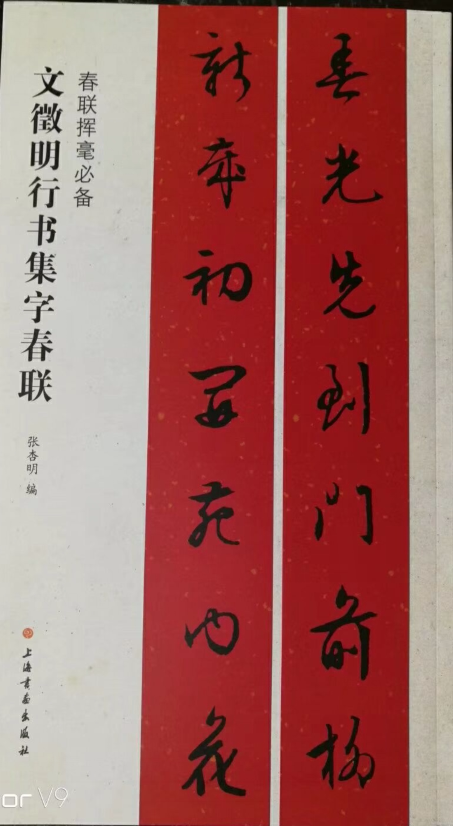 春光先到门前柳
新岁初开苑内花
春联挥毫必备
文徵明行书集字春联
张杏明 编
上海书画出版社
or V9